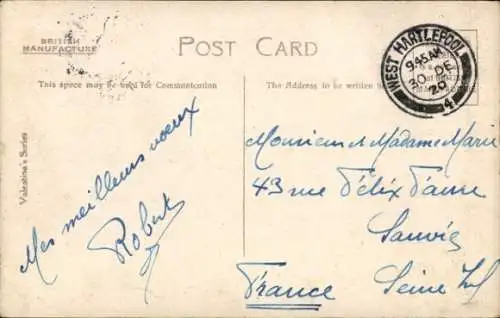 BRITISH
MANUFACTURE
POST CARD
This space may be used for Communication
The Address to be written
WEST HARTLEPOOL
9.45 AM
30 DE
20
4
Valentine's Series
Mes meilleurs voeux
Robert
Monsieur et Madame Marie
43 rue Félix Faure
Sauvic
Seine Inf
France